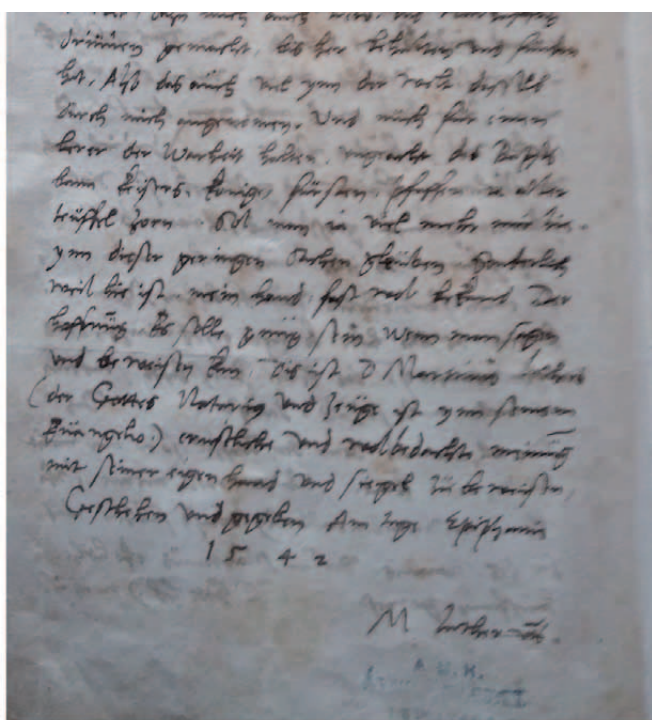 drinnen gemacht, bis her behalten und funden
hat, Also das auch viel ynn der welt dasselb
durch mich angenomen, Und mich fur einen
lerer der Warheit halten, ungeacht des Bapsts
bann, keisers, konige, fursten, pfaffen, ia aller
teuffel zorn, Sol man ia viel mehr mir hie
ynn dieser geringen sachen gleuben, sonderlich
weil hie ist mein hand, fast wol bekand, Der
hoffnung Es solle gnug sein, Wenn man sagen
und beweisen kan, Dis ist D Martinus Luthers
(der Gottes Notarius und zeuge ist ynn seinem
Euangelio) ernstliche und wolbedachte meinung
mit seiner eigen hand und siegel zu beweisen,
Geschehen und gegeben Am tage Epiphanie
1542
M Luther